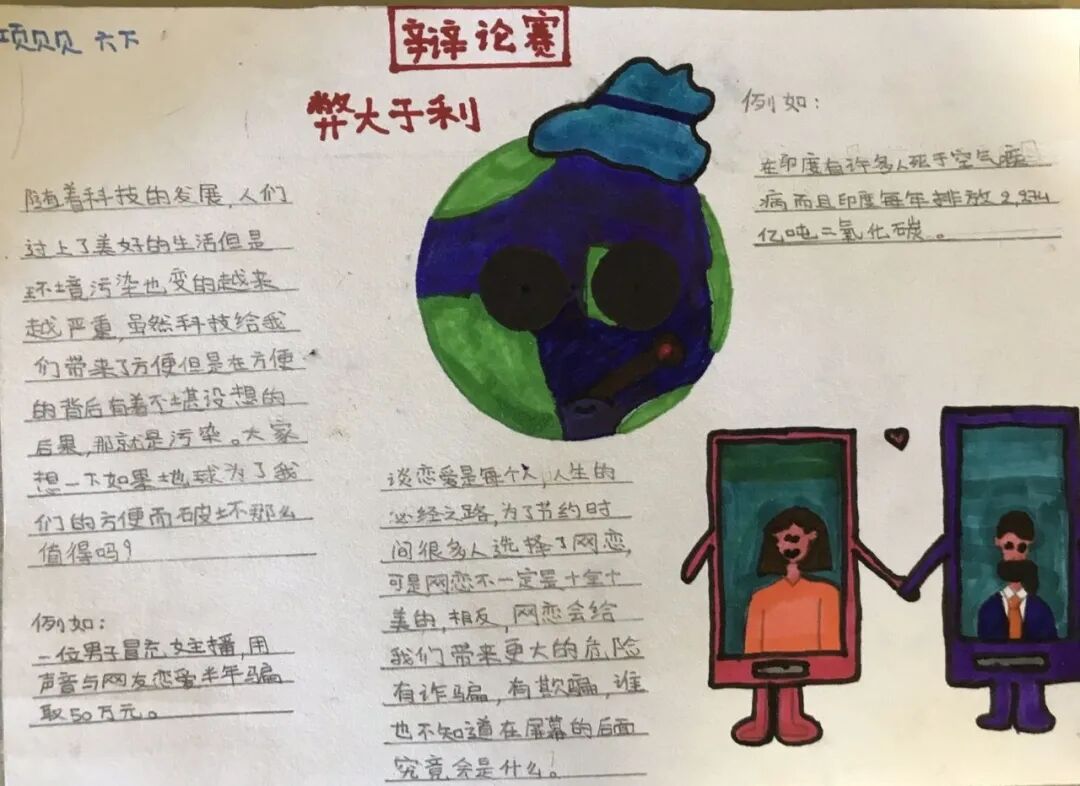 项贝贝 六下
辩论赛
弊大于利
随着科技的发展,人们
过上了美好的生活但是
环境污染也变的越来
越严重,虽然科技给我
们带来了方便但是在方便
的背后有着不堪设想的
后果,那就是污染。大家
想一下如果地球为了我
们的方便而破坏那么
值得吗?
例如:
一位男子冒充女主播,用
声音与网友恋爱半年骗
取50万元。
谈恋爱是每个人,人生的
必经之路,为了节约时
间很多人选择了网恋,
可是网恋不一定是十全十
美的,相反,网恋会给
我们带来更大的危险
有诈骗,有欺骗,谁
也不知道在屏幕的后面
究竟会是什么。
例如:
在印度有许多人死于空气
病而且印度每年排放2,274
亿吨二氧化碳。